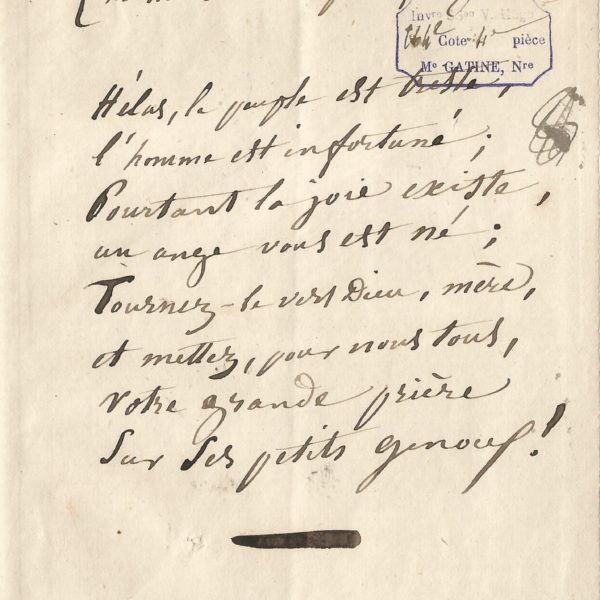 Invre
Cote 4e pièce
Me GATINE, Nre
Hélas, le peuple est triste,
l'homme est infortuné ;
Pourtant la joie existe,
un ange vous est né ;
Tournez-le vers Dieu, mère,
et mettez, pour nous tous,
votre grande prière
Sur Ses petits genoux !